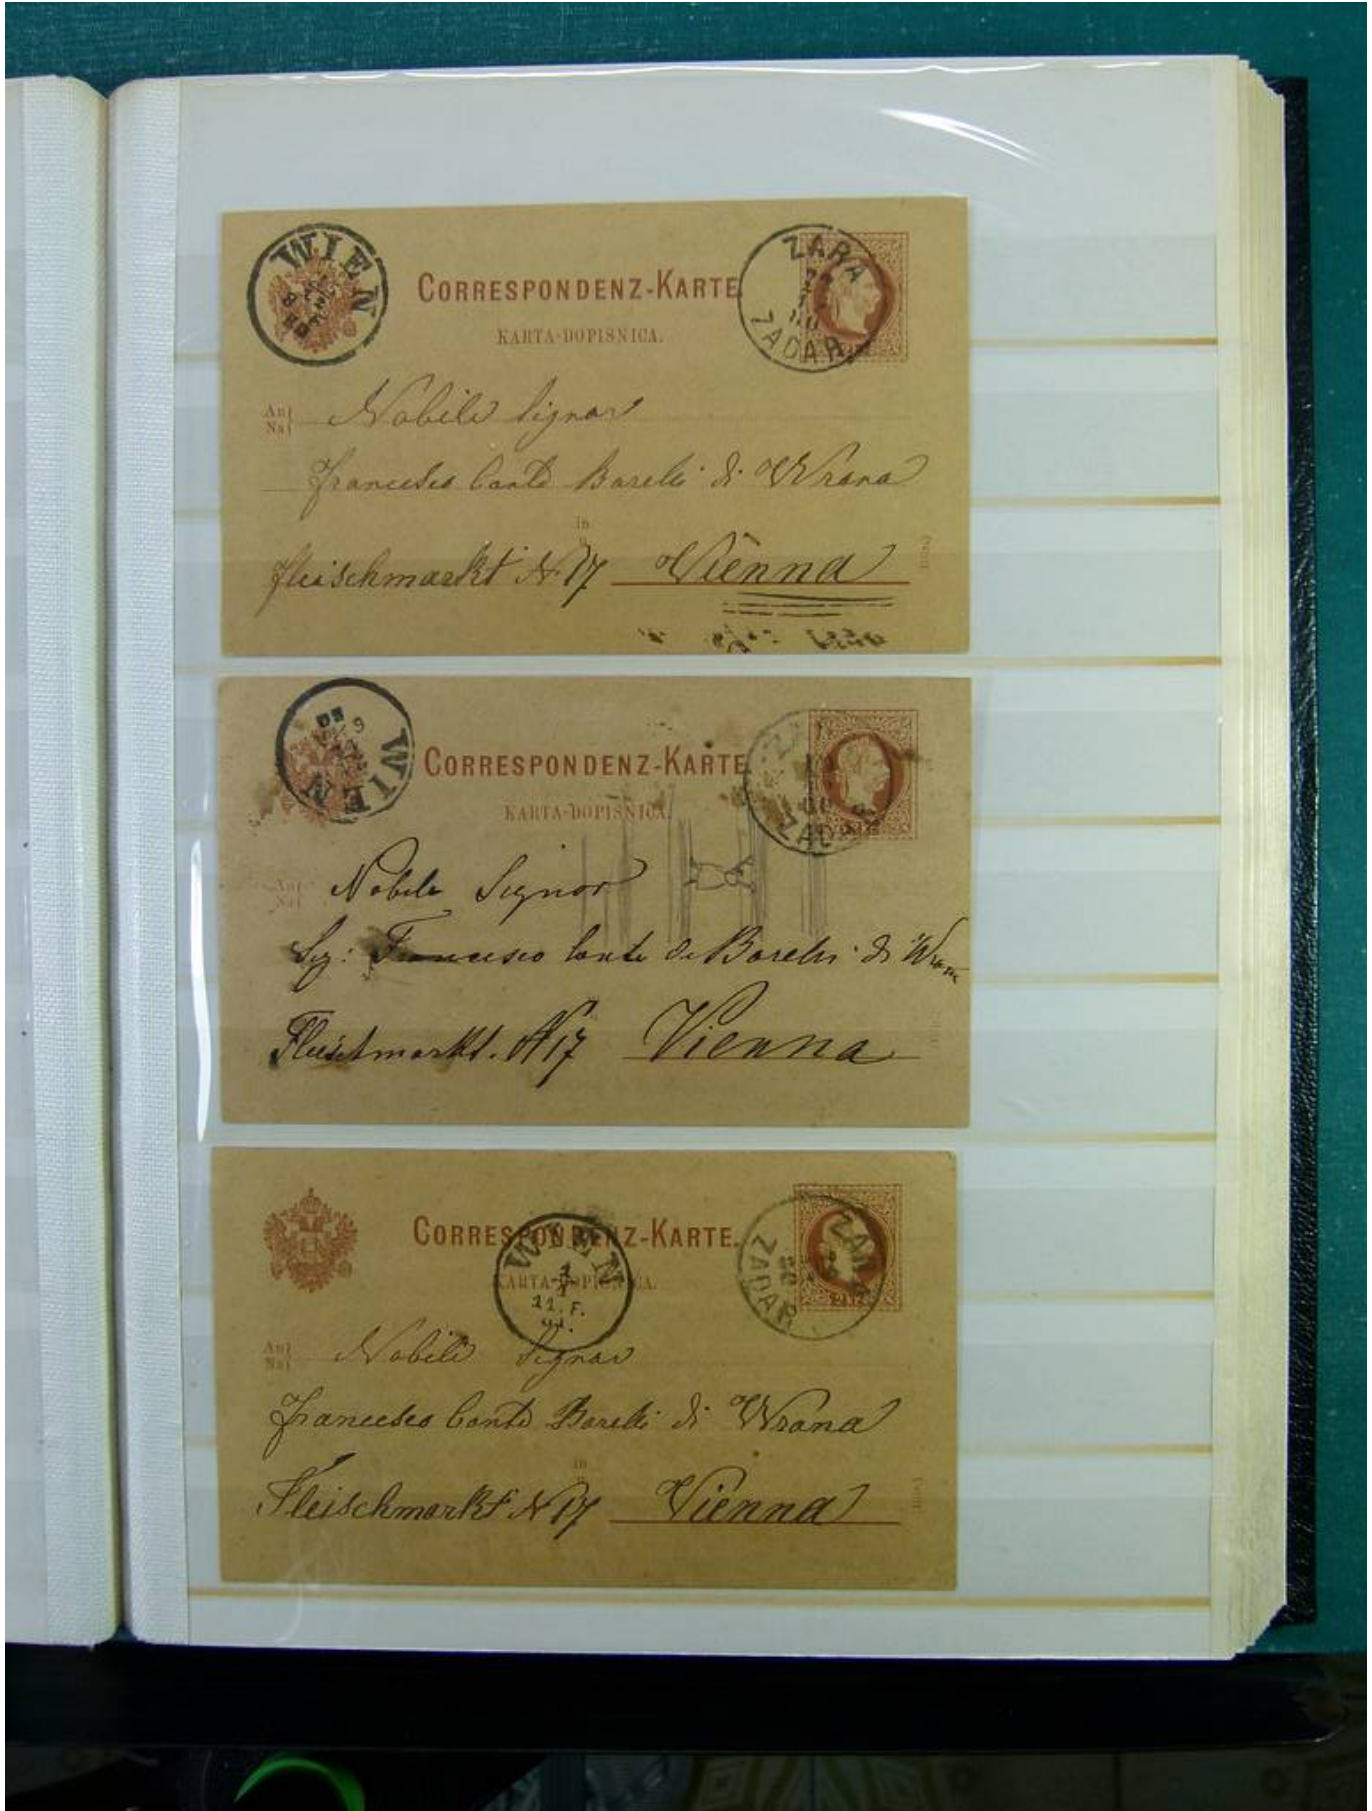 WIEN
ZARA
ZADAR
CORRESPONDENZ-KARTE
KARTA-DOPISNICA.
An
Na
Nobile Signor
Francesco Conte Borelli di Wrana
in
Fleischmarkt N 17 Vienna
WIEN
80
ZADAR
CORRESPONDENZ-KARTE
KARTA-DOPISNICA.
An
Na
Nobile Signor
Sig: Francesco Conte de Borelli di Wrana
Fleischmarkt. N 17 Vienna
CORRESPONDENZ-KARTE.
KARTA-DOPISNICA.
WIEN
1
1
11. F.
ZARA
80
ZADAR
An
Na
Nobile Signor
Francesco Conte Borelli di Wrana
in
Fleischmarkt N 17 Vienna